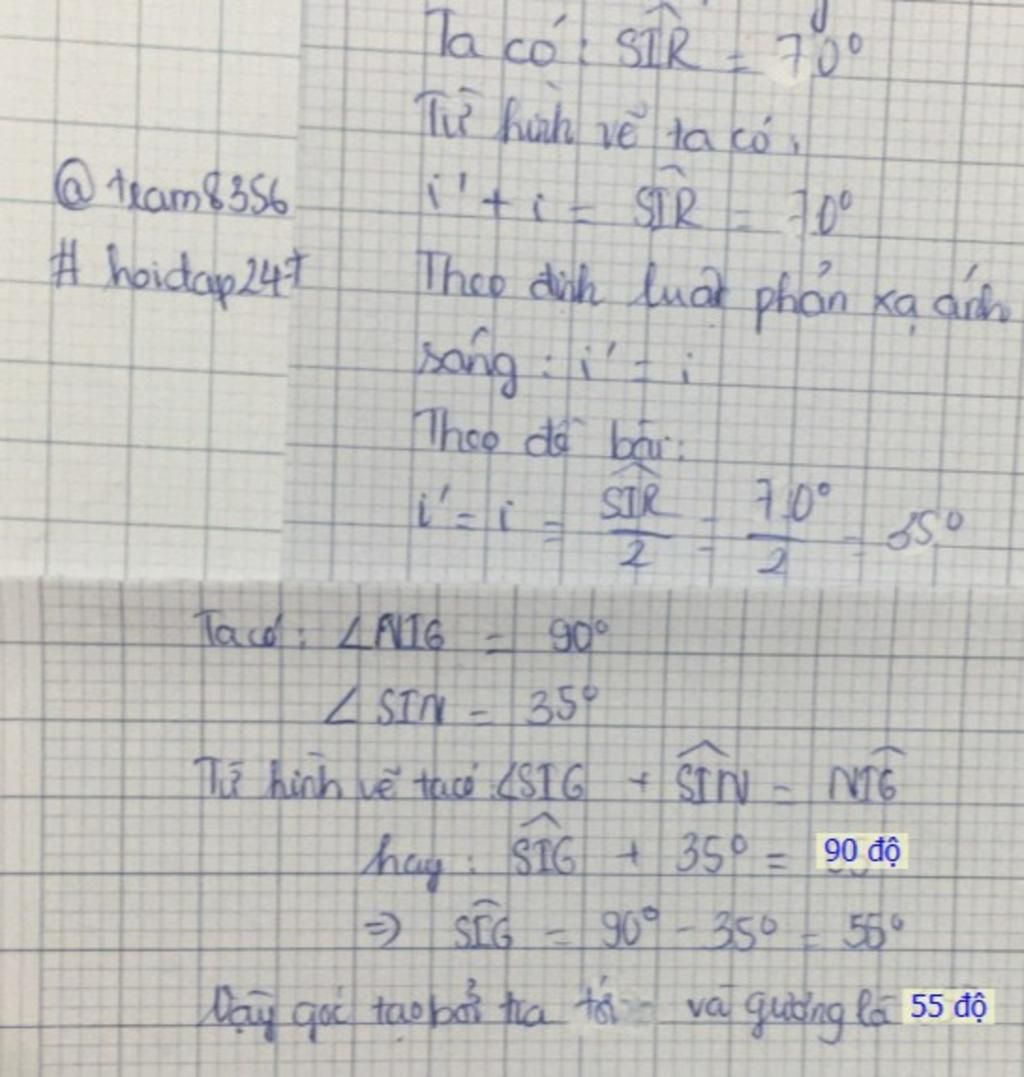 Ta có: SIR = 70°
Từ hình vẽ ta có:
@team8356
i' + i = SIR = 70°
#hoidap247
Theo định luật phản xạ ánh
sáng: i' = i
Theo đề bài:
i' = i = SIR/2 = 70°/2 = 35°
Ta có: ∠NIG = 90°
∠SIN = 35°
Từ hình vẽ ta có: ∠SIG + SIN = NIG
hay: SIG + 35° = 90 độ
⇒ SIG = 90° - 35° = 55°
Vậy góc tạo bởi tia tới và gương là 55 độ